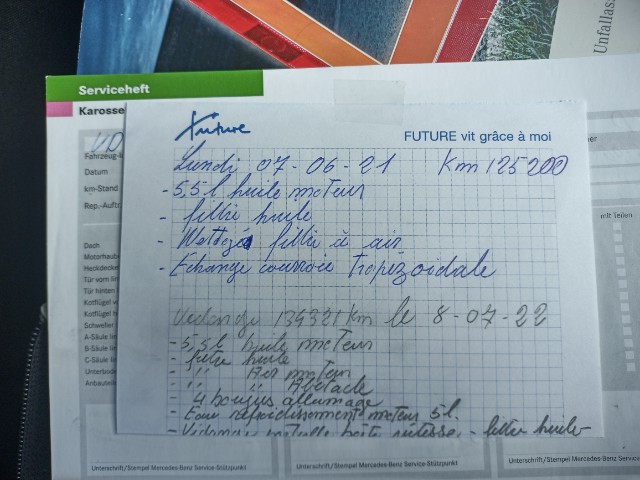 Unfallass
Serviceheft
Karosse
Future
FUTURE vit grâce à moi
Fahrzeug-I
Datum
km-Stand
Rep.-Auftr
mit Teilen
Lundi 07-06-21 Km 125200
- 5,5 l huile moteur
- filtre huile
- Nettoyé filtre à air
- Echange courroie Trapézoidale
Dach
Motorhaube
Heckdecke
Tür vorn li
Tür hinten
Kotflügel v
Kotflügel h
Schweller
A-Säule lin
B-Säule li
C-Säule li
Unterbode
Anbauteile
Vidange 134321 Km le 8-07-22
- 5,5 l huile moteur
- filtre huile
- " Air moteur
- " " Abitacle
- 4 bougies allumage
- Eau refroidissement moteur 5 l.
- Vidange boite vitesse - filtre huile
Unterschrift/Stempel Mercedes-Benz Service-Stützpunkt
Unterschrift/Stempel Mercedes-Benz Service-Stützpunkt
Unterschrift/Stempel Mercedes-Benz Serv